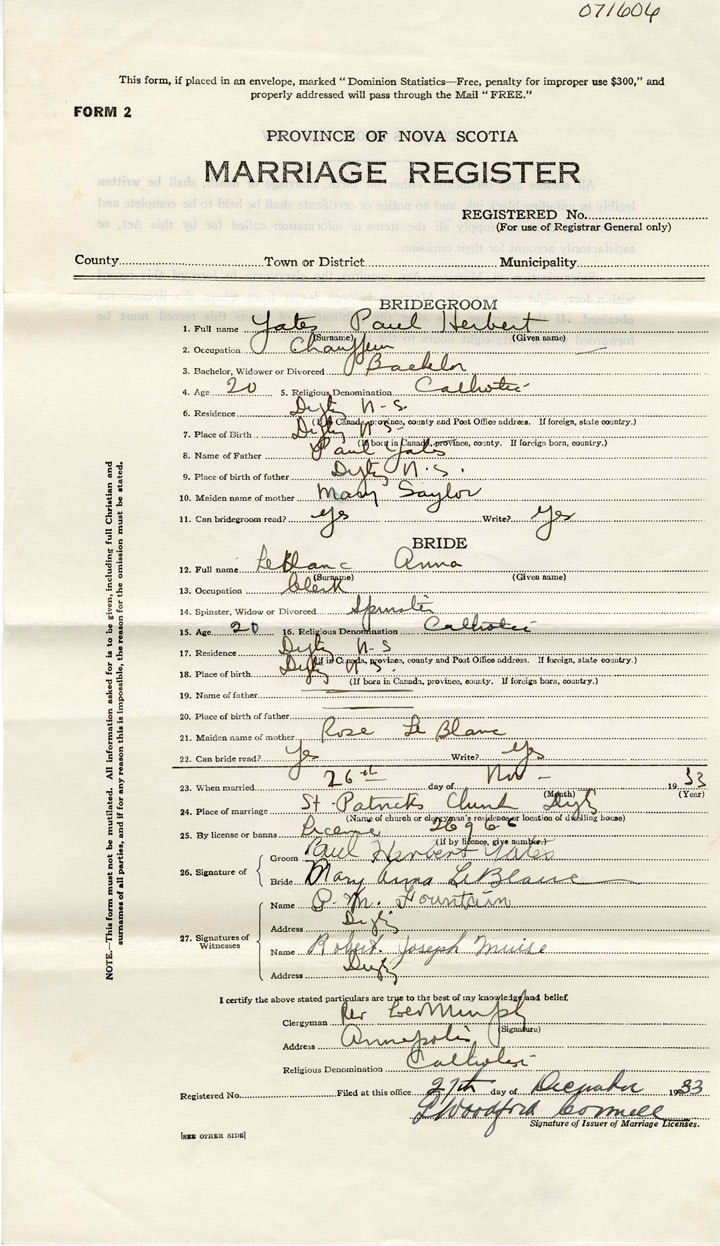 071604
This form, if placed in an envelope, marked “Dominion Statistics—Free, penalty for improper use $300,” and
properly addressed will pass through the Mail “FREE.”
FORM 2
PROVINCE OF NOVA SCOTIA
MARRIAGE REGISTER
REGISTERED No.
(For use of Registrar General only)
County Town or District Municipality
BRIDEGROOM
1. Full name Yates Paul Herbert
(Surname) (Given name)
2. Occupation Chauffeur
3. Bachelor, Widower or Divorced Bachelor
4. Age 20 5. Religious Denomination Catholic
6. Residence Digby N-S.
(If in Canada, province, county and Post Office address. If foreign, state country.)
7. Place of Birth Digby N-S-
(If born in Canada, province, county. If foreign born, country.)
8. Name of Father Paul Yates
9. Place of birth of father Digby N.S.
10. Maiden name of mother Mary Saylor
11. Can bridegroom read? Yes Write? Yes
BRIDE
12. Full name LeBlanc Anna
(Surname) (Given name)
13. Occupation Clerk
14. Spinster, Widow or Divorced Spinster
15. Age 20 16. Religious Denomination Catholic
17. Residence Digby N-S
(If in Canada, province, county and Post Office address. If foreign, state country.)
18. Place of birth Digby N.S.
(If born in Canada, province, county. If foreign born, country.)
19. Name of father
20. Place of birth of father
21. Maiden name of mother Rose Le Blanc
22. Can bride read? Yes Write? Yes
23. When married 26th day of Nov - 1933
(Month) (Year)
24. Place of marriage St-Patricks Church Digby
(Name of church or clergyman's residence or location of dwelling house)
25. By license or banns License 26966
(If by licence, give number)
26. Signature of Groom Paul Herbert Yates
Bride Mary Anna LeBlanc
27. Signatures of Witnesses
Name P. M. Fountain
Address Digby
Name Robert Joseph Muise
Address Digby
I certify the above stated particulars are true to the best of my knowledge and belief.
Clergyman Rev Leo Murphy
(Signature)
Address Annapolis
Religious Denomination Catholic
Registered No. Filed at this office 27th day of December 1933
Woodford Connell
Signature of Issuer of Marriage Licenses.
[SEE OTHER SIDE]
NOTE.—This form must not be mutilated. All information asked for is to be given, including full Christian and
surnames of all parties, and if for any reason this is impossible, the reason for the omission must be stated.